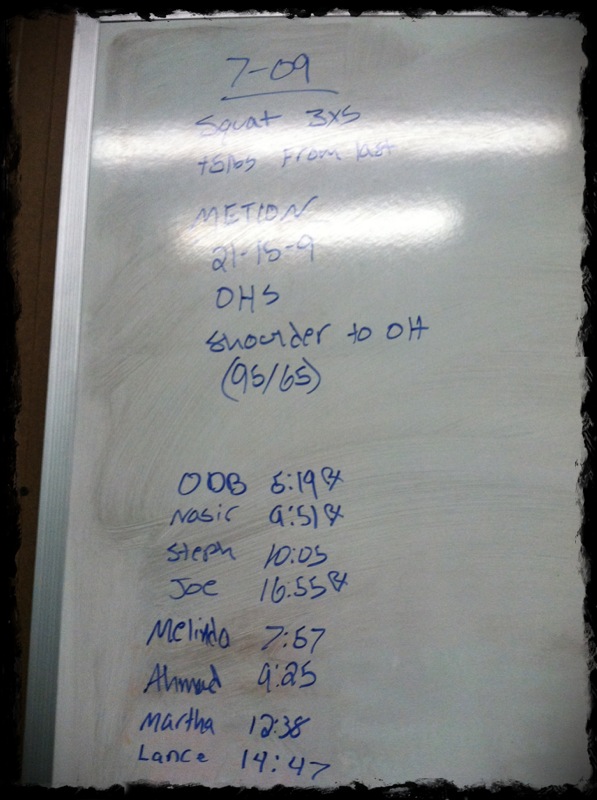 7-09
Squat 3x5
+5lbs From last
METCON
21-15-9
OHS
Shoulder to OH
(95/65)
ODB 5:19 Rx
Nasir 9:51 Rx
Steph 10:05
Joe 16:55 Rx
Melinda 7:57
Ahmad 9:25
Martha 12:38
Lance 14:47